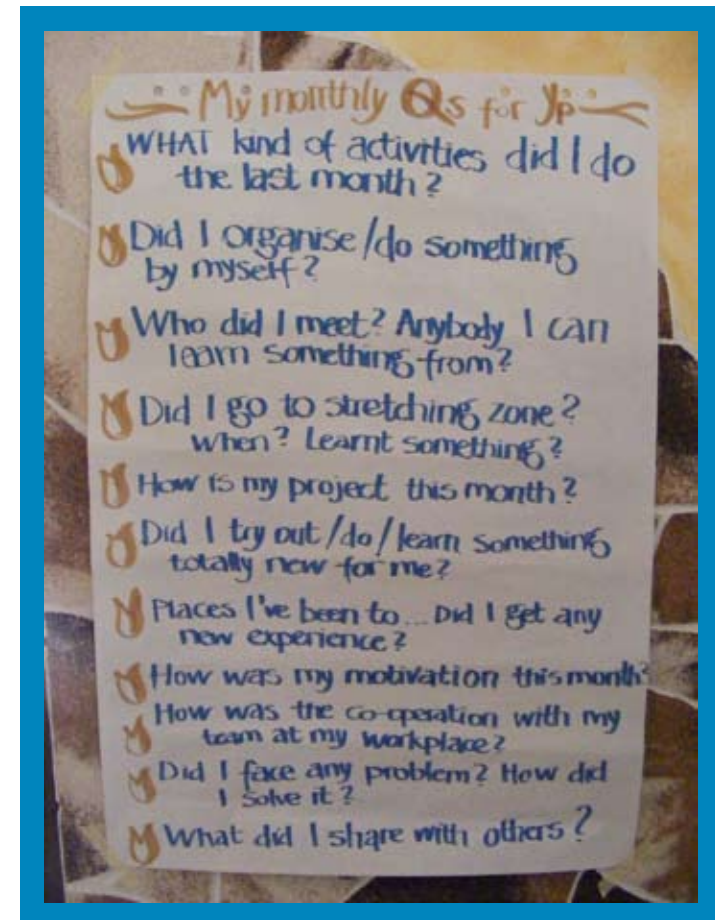 My monthly Qs for Yp
WHAT kind of activities did I do
the last month?
Did I organise/do something
by myself?
Who did I meet? Anybody I can
learn something from?
Did I go to stretching zone?
When? Learnt something?
How is my project this month?
Did I try out/do/learn something
totally new for me?
Places I've been to... Did I get any
new experience?
How was my motivation this month?
How was the co-operation with my
team at my workplace?
Did I face any problem? How did
I solve it?
What did I share with others?